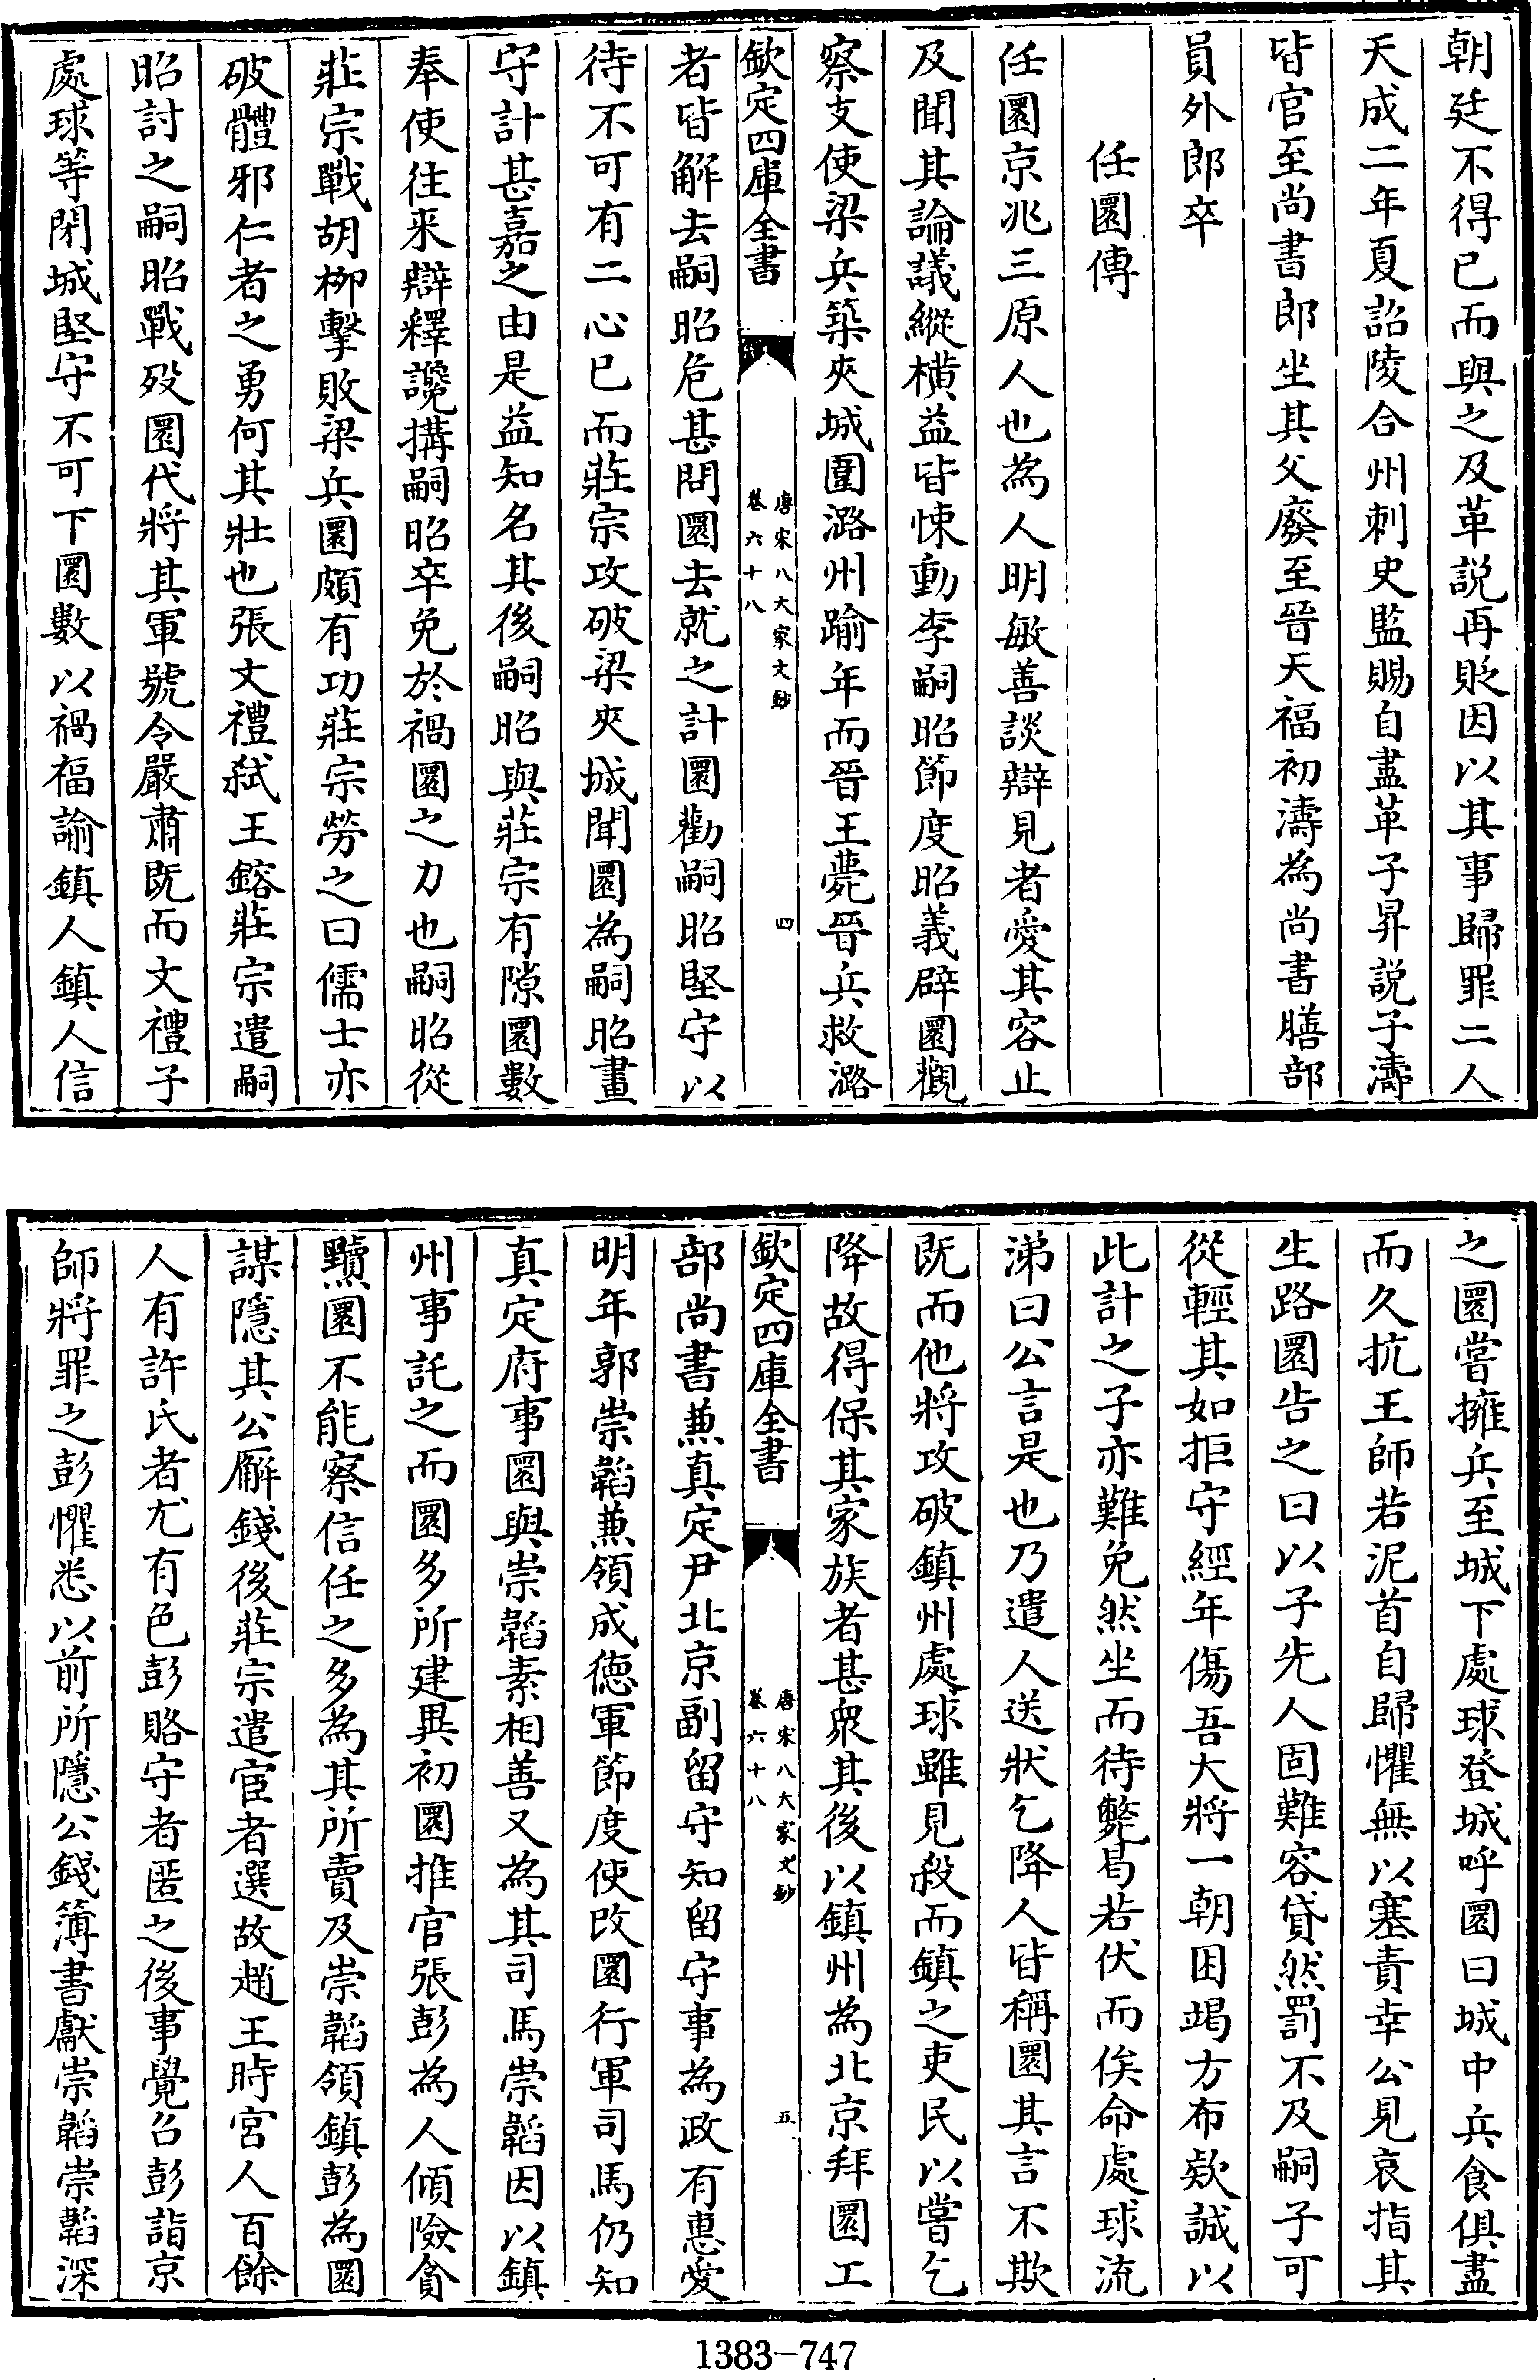 朝廷不得已而與之及革説再貶因以其事歸罪二人
天成二年夏詔陵合州刺史監賜自盡革子昇説子濤
皆官至尚書郎坐其父廢至晉天福初濤為尚書膳部
員外郎卒
任圜傳
任圜京兆三原人也為人明敏善談辯見者愛其容止
及聞其論議縱横益皆悚動李嗣昭節度昭義辟圜觀
察支使梁兵築夾城圍潞州踰年而晉王薨晉兵救潞
欽定四庫全書
唐宋八大家文鈔
卷六十八
四
者皆解去嗣昭危甚問圜去就之計圜勸嗣昭堅守以
待不可有二心已而莊宗攻破梁夾城聞圜為嗣昭畫
守計甚嘉之由是益知名其後嗣昭與莊宗有隙圜數
奉使往来辯釋讒搆嗣昭卒免於禍圜之力也嗣昭從
莊宗戰胡柳擊敗梁兵圜頗有功莊宗勞之曰儒士亦
破體邪仁者之勇何其壯也張文禮弑王鎔莊宗遣嗣
昭討之嗣昭戰殁圜代將其軍號令嚴肅既而文禮子
處球等閉城堅守不可下圜數以禍福諭鎮人鎮人信
之圜嘗擁兵至城下處球登城呼圜曰城中兵食俱盡
而久抗王師若泥首自歸懼無以塞責幸公見哀指其
生路圜告之曰以子先人固難容貸然罰不及嗣子可
從輕其如拒守經年傷吾大將一朝困竭方布欵誠以
此計之子亦難免然坐而待斃曷若伏而俟命處球流
涕曰公言是也乃遣人送狀乞降人皆稱圜其言不欺
既而他將攻破鎮州處球雖見殺而鎮之吏民以嘗乞
降故得保其家族者甚衆其後以鎮州為北京拜圜工
欽定四庫全書
唐宋八大家文鈔
卷六十八
五
部尚書兼真定尹北京副留守知留守事為政有惠愛
明年郭崇韜兼領成德軍節度使改圜行軍司馬仍知
真定府事圜與崇韜素相善又為其司馬崇韜因以鎮
州事託之而圜多所建異初圜推官張彭為人傾險貪
黷圜不能察信任之多為其所賣及崇韜領鎮彭為圜
謀隱其公廨錢後莊宗遣宦者選故趙王時宮人百餘
人有許氏者尤有色彭賂守者匿之後事覺召彭詣京
師將罪之彭懼悉以前所隱公錢簿書獻崇韜崇韜深
1383-747